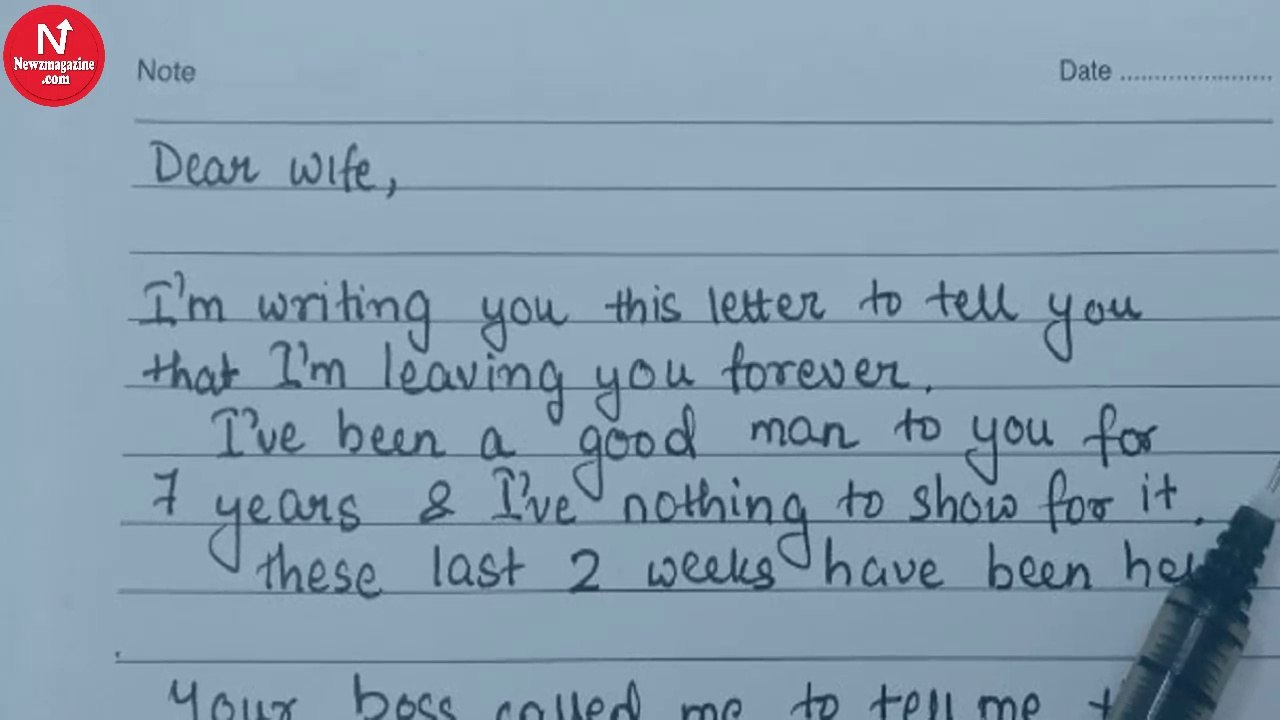 N
Newzmagazine
.com
Note Date ......................
Dear wife,
I'm writing you this letter to tell you
that I'm leaving you forever.
I've been a good man to you for
7 years & I've nothing to show for it.
these last 2 weeks have been
Your boss called me to tell me